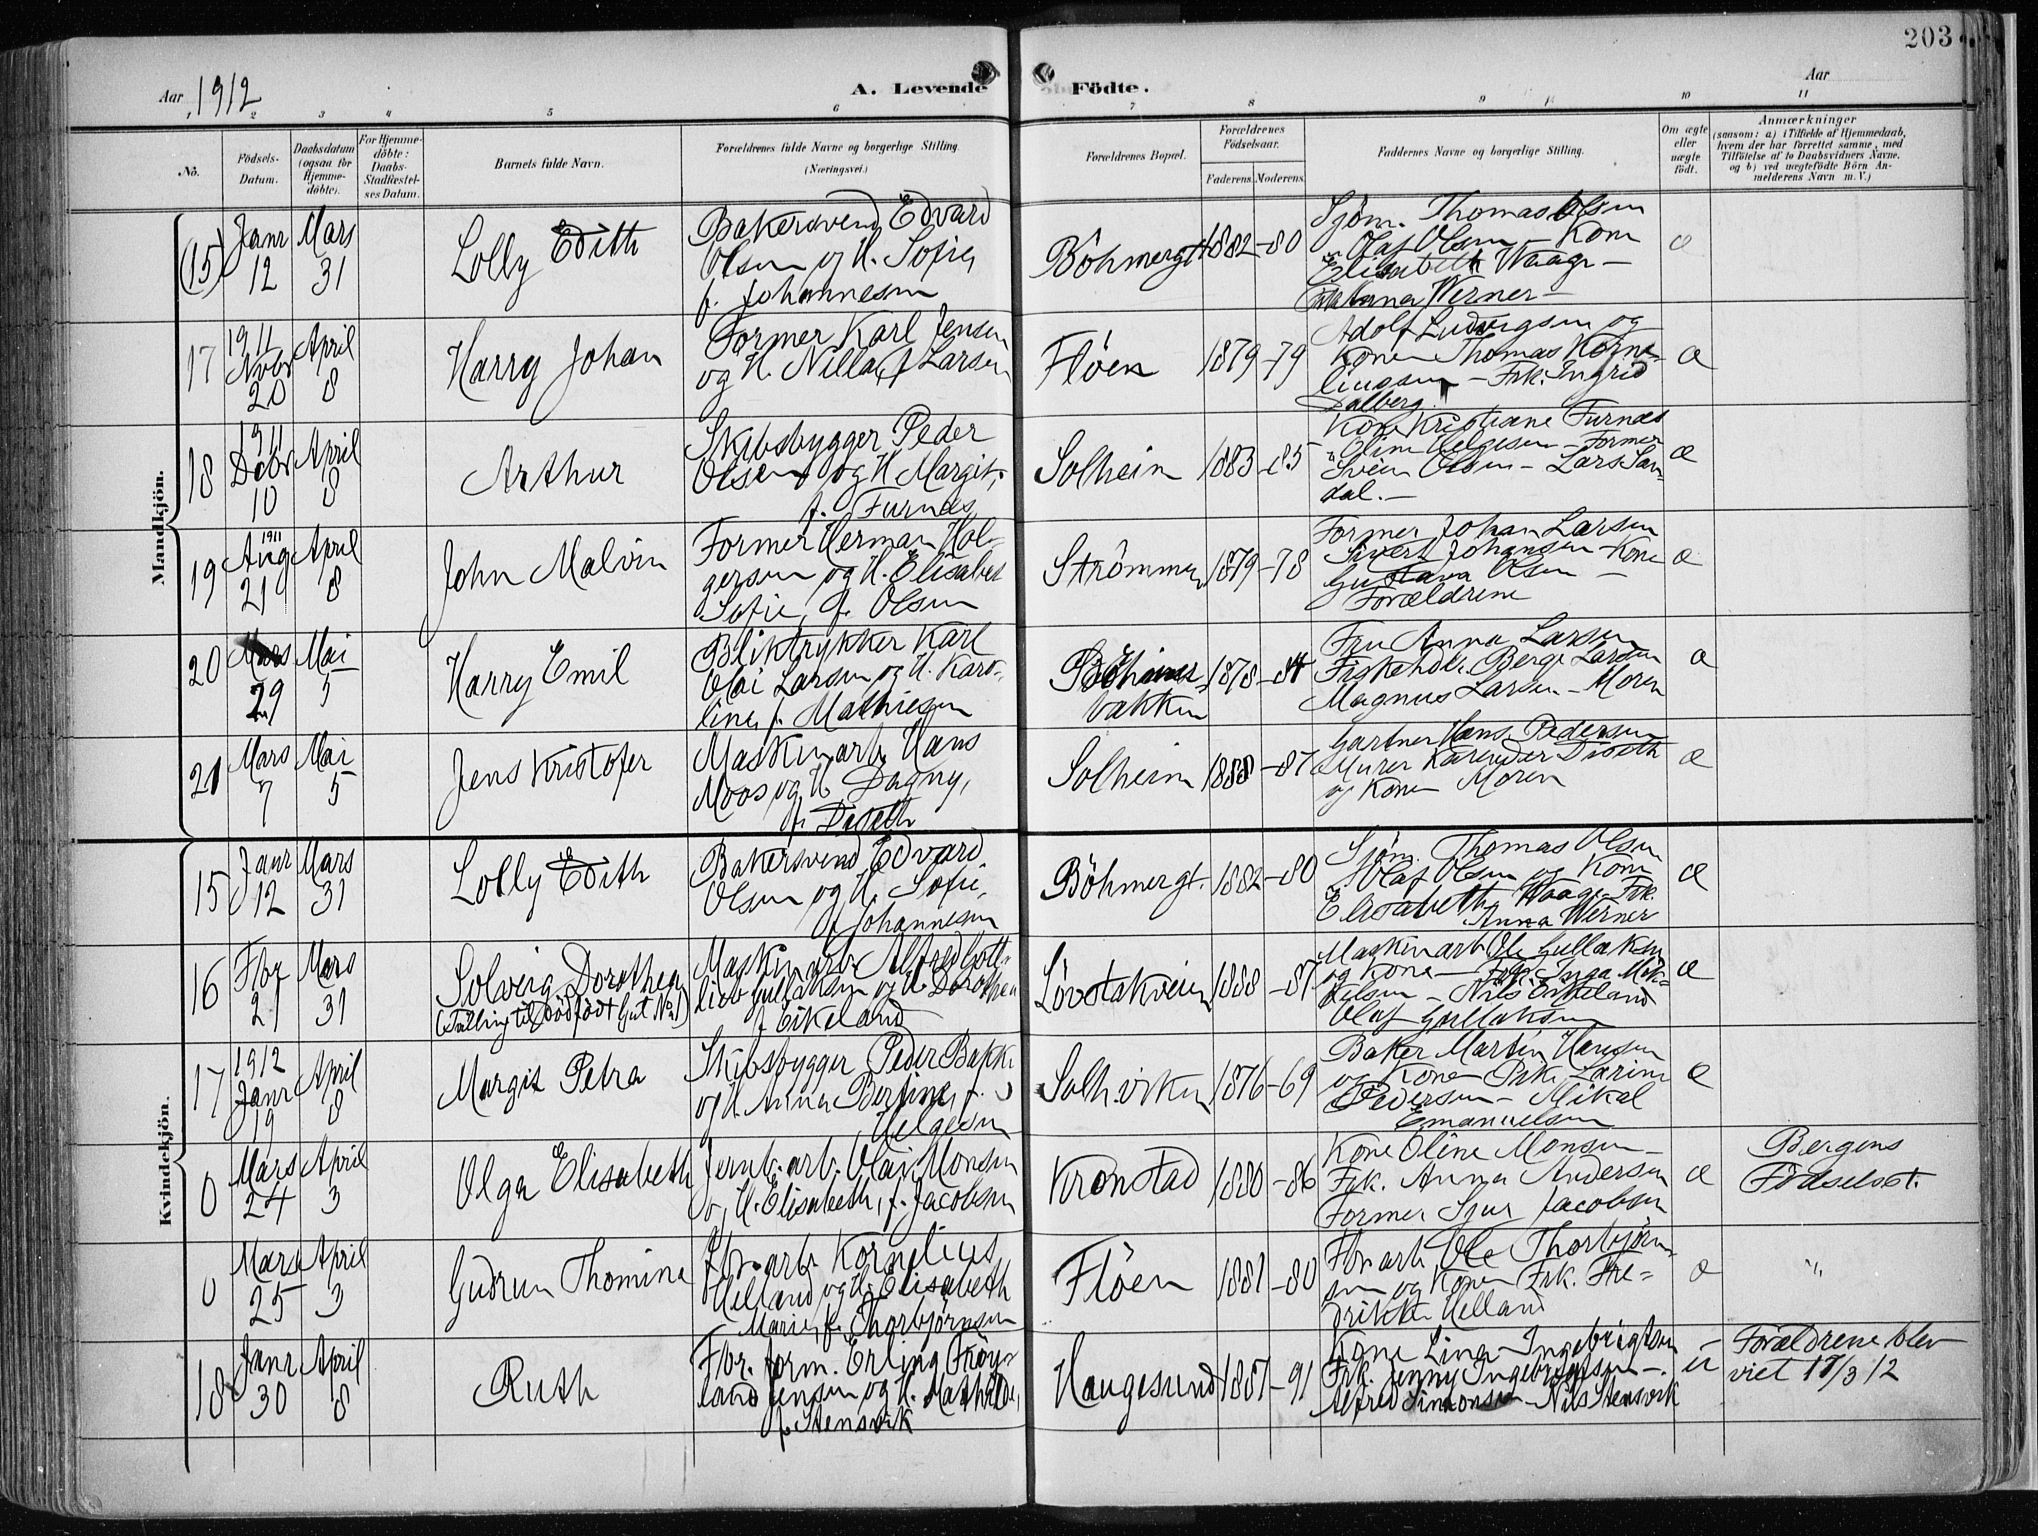 203
Aar 1912
A. Levende Födte.
Aar
1 2 3 4 5 6 7 8 9 10 11
No.
Födsels-Datum.
Daabsdatum (ogsaa for Hjemme-döbte).
For Hjemme-döbte: Daabs-Stadfæstel-ses Datum.
Barnets fulde Navn.
Forældrenes fulde Navne og borgerlige Stilling.
(Næringsvei.)
Forældrenes Bopæl.
Forældrenes Födselsaar.
Faderens. Moderens.
Faddernes Navne og borgerlige Stilling.
Om ægte eller uægte födt.
Anmærkninger
(saasom: a) i Tilfælde af Hjemmedaab, hvem der har forrettet samme, med Tilföielse af to Daabsvidners Navne, og b) ved uægtefödte Börn An-melderens Navn m. V.)
Mandkjön.
(15) Janr 12 Mars 31
Lolly Edith
Bakersvend Edvard
Olsen og H. Sofie,
f. Johannesen
Böhmergt 1882-80
Sjöm. Thomas Olsen
Olaf Olsen - Kone
Elisabeth Waage -
Frk Anna Werner -
æ
17 1911 Novbr 20 April 8
Harry Johan
Former Karl Jensen
og H. Nilla f. Larsen
Flöen 1879-79
Adolf Ludvigsen og
Kone Thomas Korne-
liussen - Frk. Ingrid
Dalberg.
æ
18 1911 Debr 10 April 8
Arthur
Skibsbygger Peder
Olsen og H. Margit,
f. Furnes
Solheim 1883-85
Kone Kristiane Furnæs
" Oline Helgesen - Former
Svein Olsen - Lars San-
dal. -
æ
19 1911 Aug 21 April 8
John Malvin
Former Herman Hol-
gersen og H. Elisabet
Sofie, f. Olsen
Strömmen 1879-78
Former Johan Larsen
Sivert Johansen - Kone
Gustava Olsen -
Forældrene
æ
20 Mars 29 Mai 5
Harry Emil
Bliktrykker Karl
Olai Larsen og H. Karo-
line, f. Mathiesen
Böhmer-
bakken 1878-84
Fru Anna Larsen
Fiskehdl. Berge Larsen
Magnus Larsen - Moren
æ
21 Mars 7 Mai 5
Jens Kristofer
Maskinarb. Hans
Moos og H. Dagny,
f. Diseth
Solheim 1888-87
Gartner Hans Pedersen
Murer Diseth
og Kone Moren
æ
Kvindekjön.
15 Janr 12 Mars 31
Lolly Edith
Bakersvend Edvard
Olsen og H. Sofie,
f. Johannesen
Böhmergt. 1882-80
Sjöm. Thomas Olsen
Olaf Olsen og Kone
Elisabeth Waage Frk.
Anna Werner
æ
16 Fbr 21 Mars 31
Solveig Dorothea
(Tvilling til Dödfödt Gut No 1)
Maskinarb. Alfred Gott-
lieb Gullaksen og H. Dorothea
f. Eikeland
Lövstakveien 1888-87
Maskinarb. Ole Gullaksen
og Kone - Frk. Inga Mik-
kelsen - Nils Eikeland
Olaf Gullaksen
æ
17 1912 Janr 19 April 8
Margit Petra
Skibsbygger Peder Bakke
og H. Anna Bertine, f.
Helgesen
Solh.viken 1876-69
Baker Martin Hansen
og Kone Frk. Larine
Pedersen - Mikal
Emanuelsen
æ
0 Mars 24 April 3
Olga Elisabeth
Jernb.arb. Olai Monsen
og H. Elisabeth, f. Jacobsen
Kronstad 1880-86
Kone Oline Monsen -
Frk. Anna Andersen
Former Sjur Jacobsen
æ
Bergens
Födselsst.
0 Mars 25 April 3
Gudrun Thomine
Fbr.arb. Kornelius
Helland og H. Elisabeth
Marie, f. Thorbjörnsen
Flöen 1881-80
Fbr.arb. Ole Thorbjörn-
sen og Kone Frk. Fre-
drikke Helland
æ
"
18 Janr 30 April 8
Ruth
Fbr. form. Erling Fröy-
land Jensen og H. Mathilde,
f. Stensvik
Haugesund 1887-91
Kone Lina Ingebrigtsen
Frk. Jenny Ingebrigtsen -
Alfred Simonsen - Nils Stensvik
Forældrene blev
viet 17/3 12